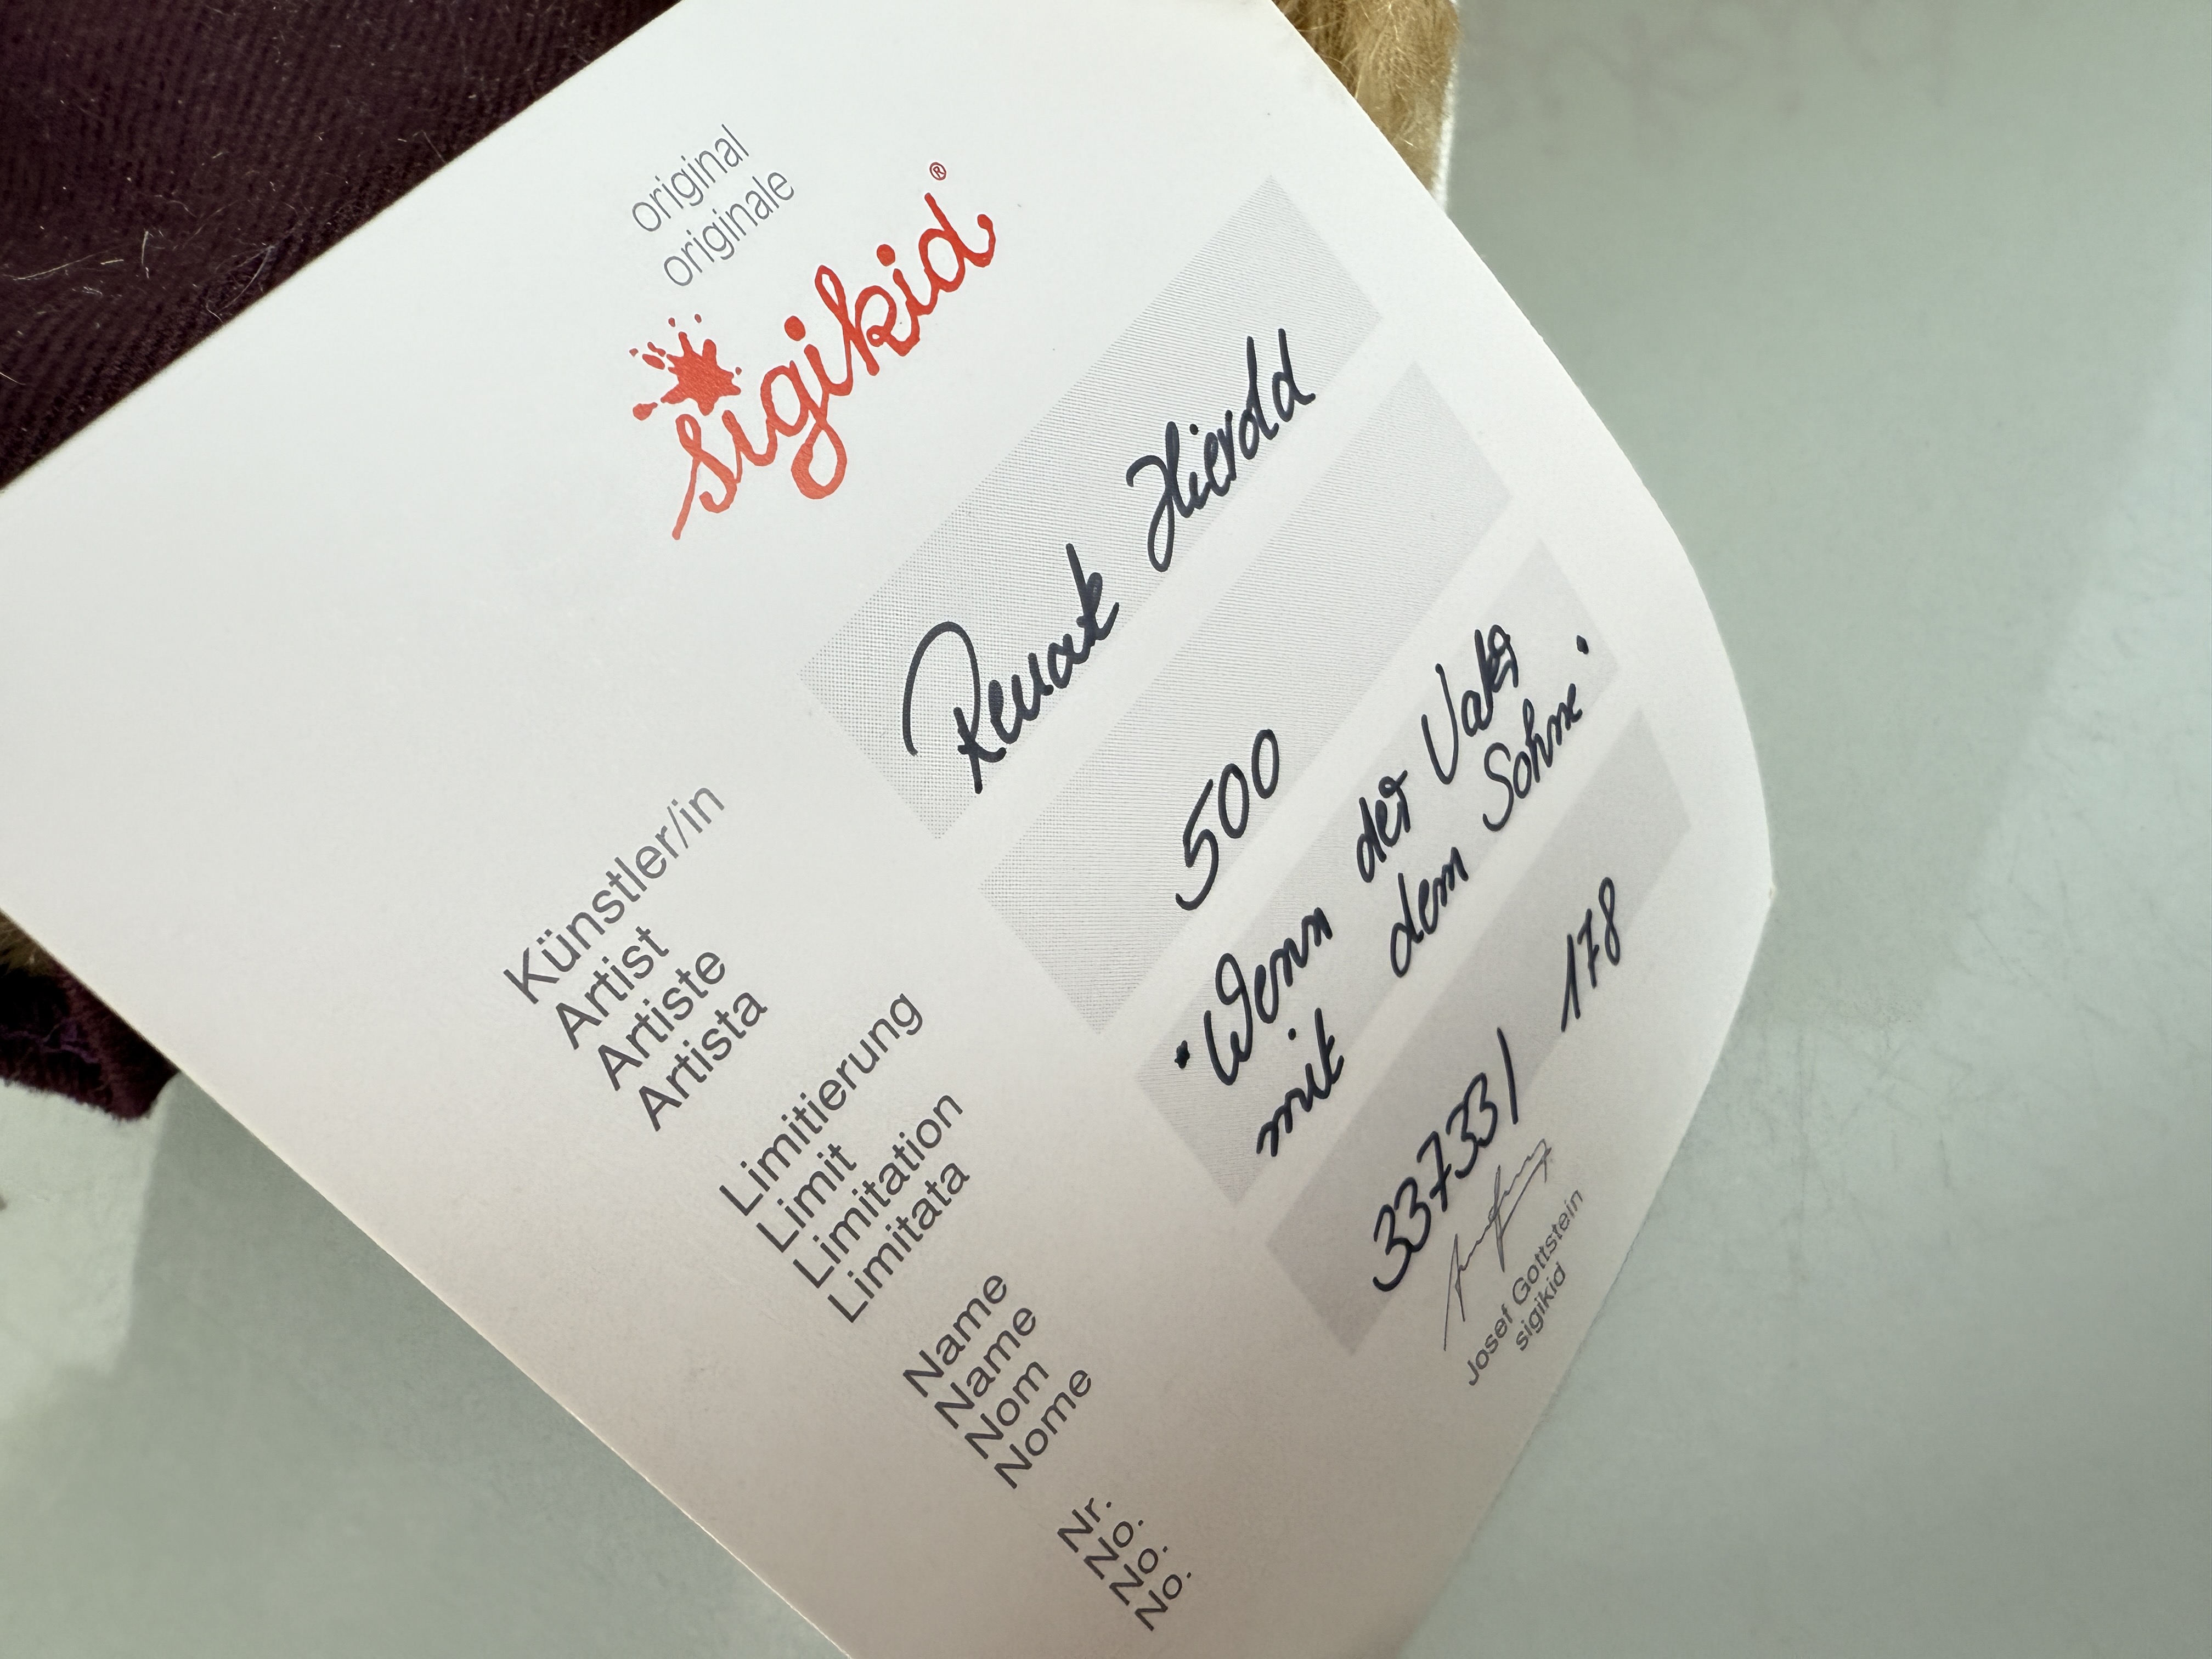 original
originale
sigikid®
Künstler/in
Artist
Artiste
Artista
Renate Hierold
Limitierung
Limit
Limitation
Limitata
500
Name
Name
Nom
Nome
"Wenn der Vater
mit dem Sohne"
Nr.
No.
No.
No.
33733/ 178
Josef Gottstein
sigikid